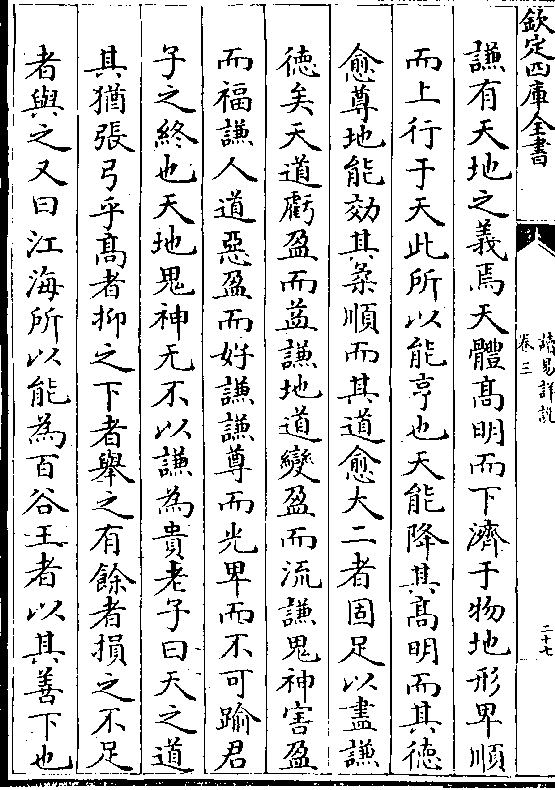 欽定四庫全書
讀易詳說
卷三
二十七
謙有天地之義焉天體髙明而下濟于物地形卑順
而上行于天此所以能亨也天能降其髙明而其徳
愈尊地能効其柔順而其道愈大二者固足以盡謙
徳矣天道虧盈而益謙地道變盈而流謙鬼神害盈
而福謙人道惡盈而好謙謙尊而光卑而不可踰君
子之終也天地鬼神无不以謙為貴老子曰天之道
其猶張弓乎髙者抑之下者舉之有餘者損之不足
者與之又曰江海所以能為百谷王者以其善下也